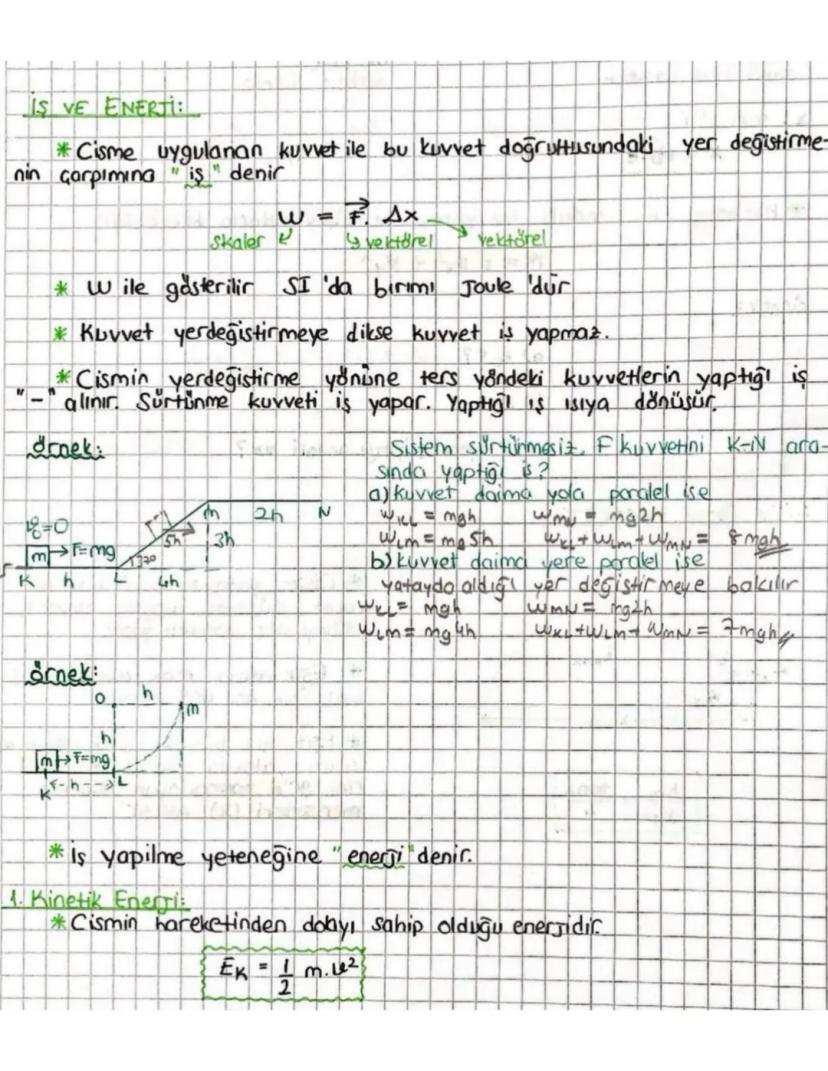 İŞ VE ENERJİ:
* Cisme uygulanan kuvvet ile bu kuvvet doğrultusundaki yer değiştirme-
nin çarpımına "iş" denir
W = F. Δx
skaler vektörel vektörel
* W ile gösterilir SI 'da birimi Joule 'dür
* Kuvvet yerdeğiştirmeye dikse kuvvet iş yapmaz.
* Cismin yerdeğiştirme yönüne ters yöndeki kuvvetlerin yaptığı iş
"-" alınır. Sürtünme kuvveti iş yapar. Yaptığı iş ısıya dönüşür.
örnek:
Sistem sürtünmesiz. F kuvvetini K-N ara-
sında yaptığı iş?
a) kuvvet daima yola paralel ise
WKL = mgh WMN = mg2h
WLM = mg5h WKL+WLM+WMN = 8mgh
b) kuvvet daima yere paralel ise
yatayda aldığı yer değiştirmeye bakılır
WKL = mgh WMN = mg2h
WLM = mg4h WKL+WLM+WMN = 7mgh
m 2h N
=0 5h 3h
m F=mg 37°
K h L 4h
örnek:
O h m
h
m F=mg
K h L
* İş yapılme yeteneğine "enerji" denir.
1. Kinetik Enerji:
* Cismin hareketinden dolayı sahip olduğu enerjidir.
EK = 1/2 m.v²